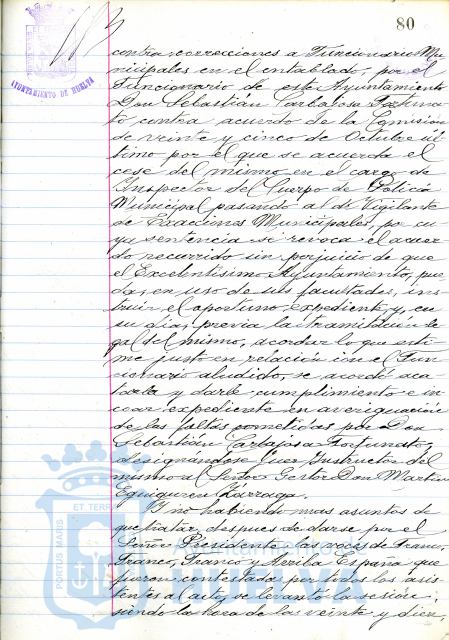 80
AYUNTAMIENTO DE HUELVA
contra correcciones a Funcionarios Mu-
nicipales en el entablado, por el
Funcionario de este Ayuntamiento
Don Sebastián Carbajosa Fortuna-
to, contra acuerdo de la Comisión
de veinte y cinco de Octubre úl-
timo por el que se acuerda el
cese del mismo en el cargo de
Inspector del Cuerpo de Policía
Municipal pasando al de Vigilante
de Exacciones Municipales, por cu-
ya sentencia se revoca el acuer-
do recurrido sin perjuicio de que
el Excelentísimo Ayuntamiento, pue-
da, en uso de sus facultades, ins-
truir el oportuno expediente y, en
su día, previa la tramitación le-
gal del mismo, acordar lo que esti-
me justo en relación con el Fun-
cionario aludido, se acordó aca-
tarla y darle cumplimiento e in-
coar expediente en averiguación
de las faltas cometidas por Don
Sebastián Carbajosa Fortunato,
designándose Juez Instructor del
mismo al Señor Gestor Don Martín
Eguiguren
Y no habiendo mas asuntos de
que tratar, despues de darse por el
Señor Presidente las voces de Franco,
Franco, Franco y Arriba España que
fueron contestadas por todos los asis-
tentes al acto, se levantó la sesión,
siendo la hora de las veinte y diez,
PORTUS MARIS ET TERRAE
Ayuntamiento de
HUELVA